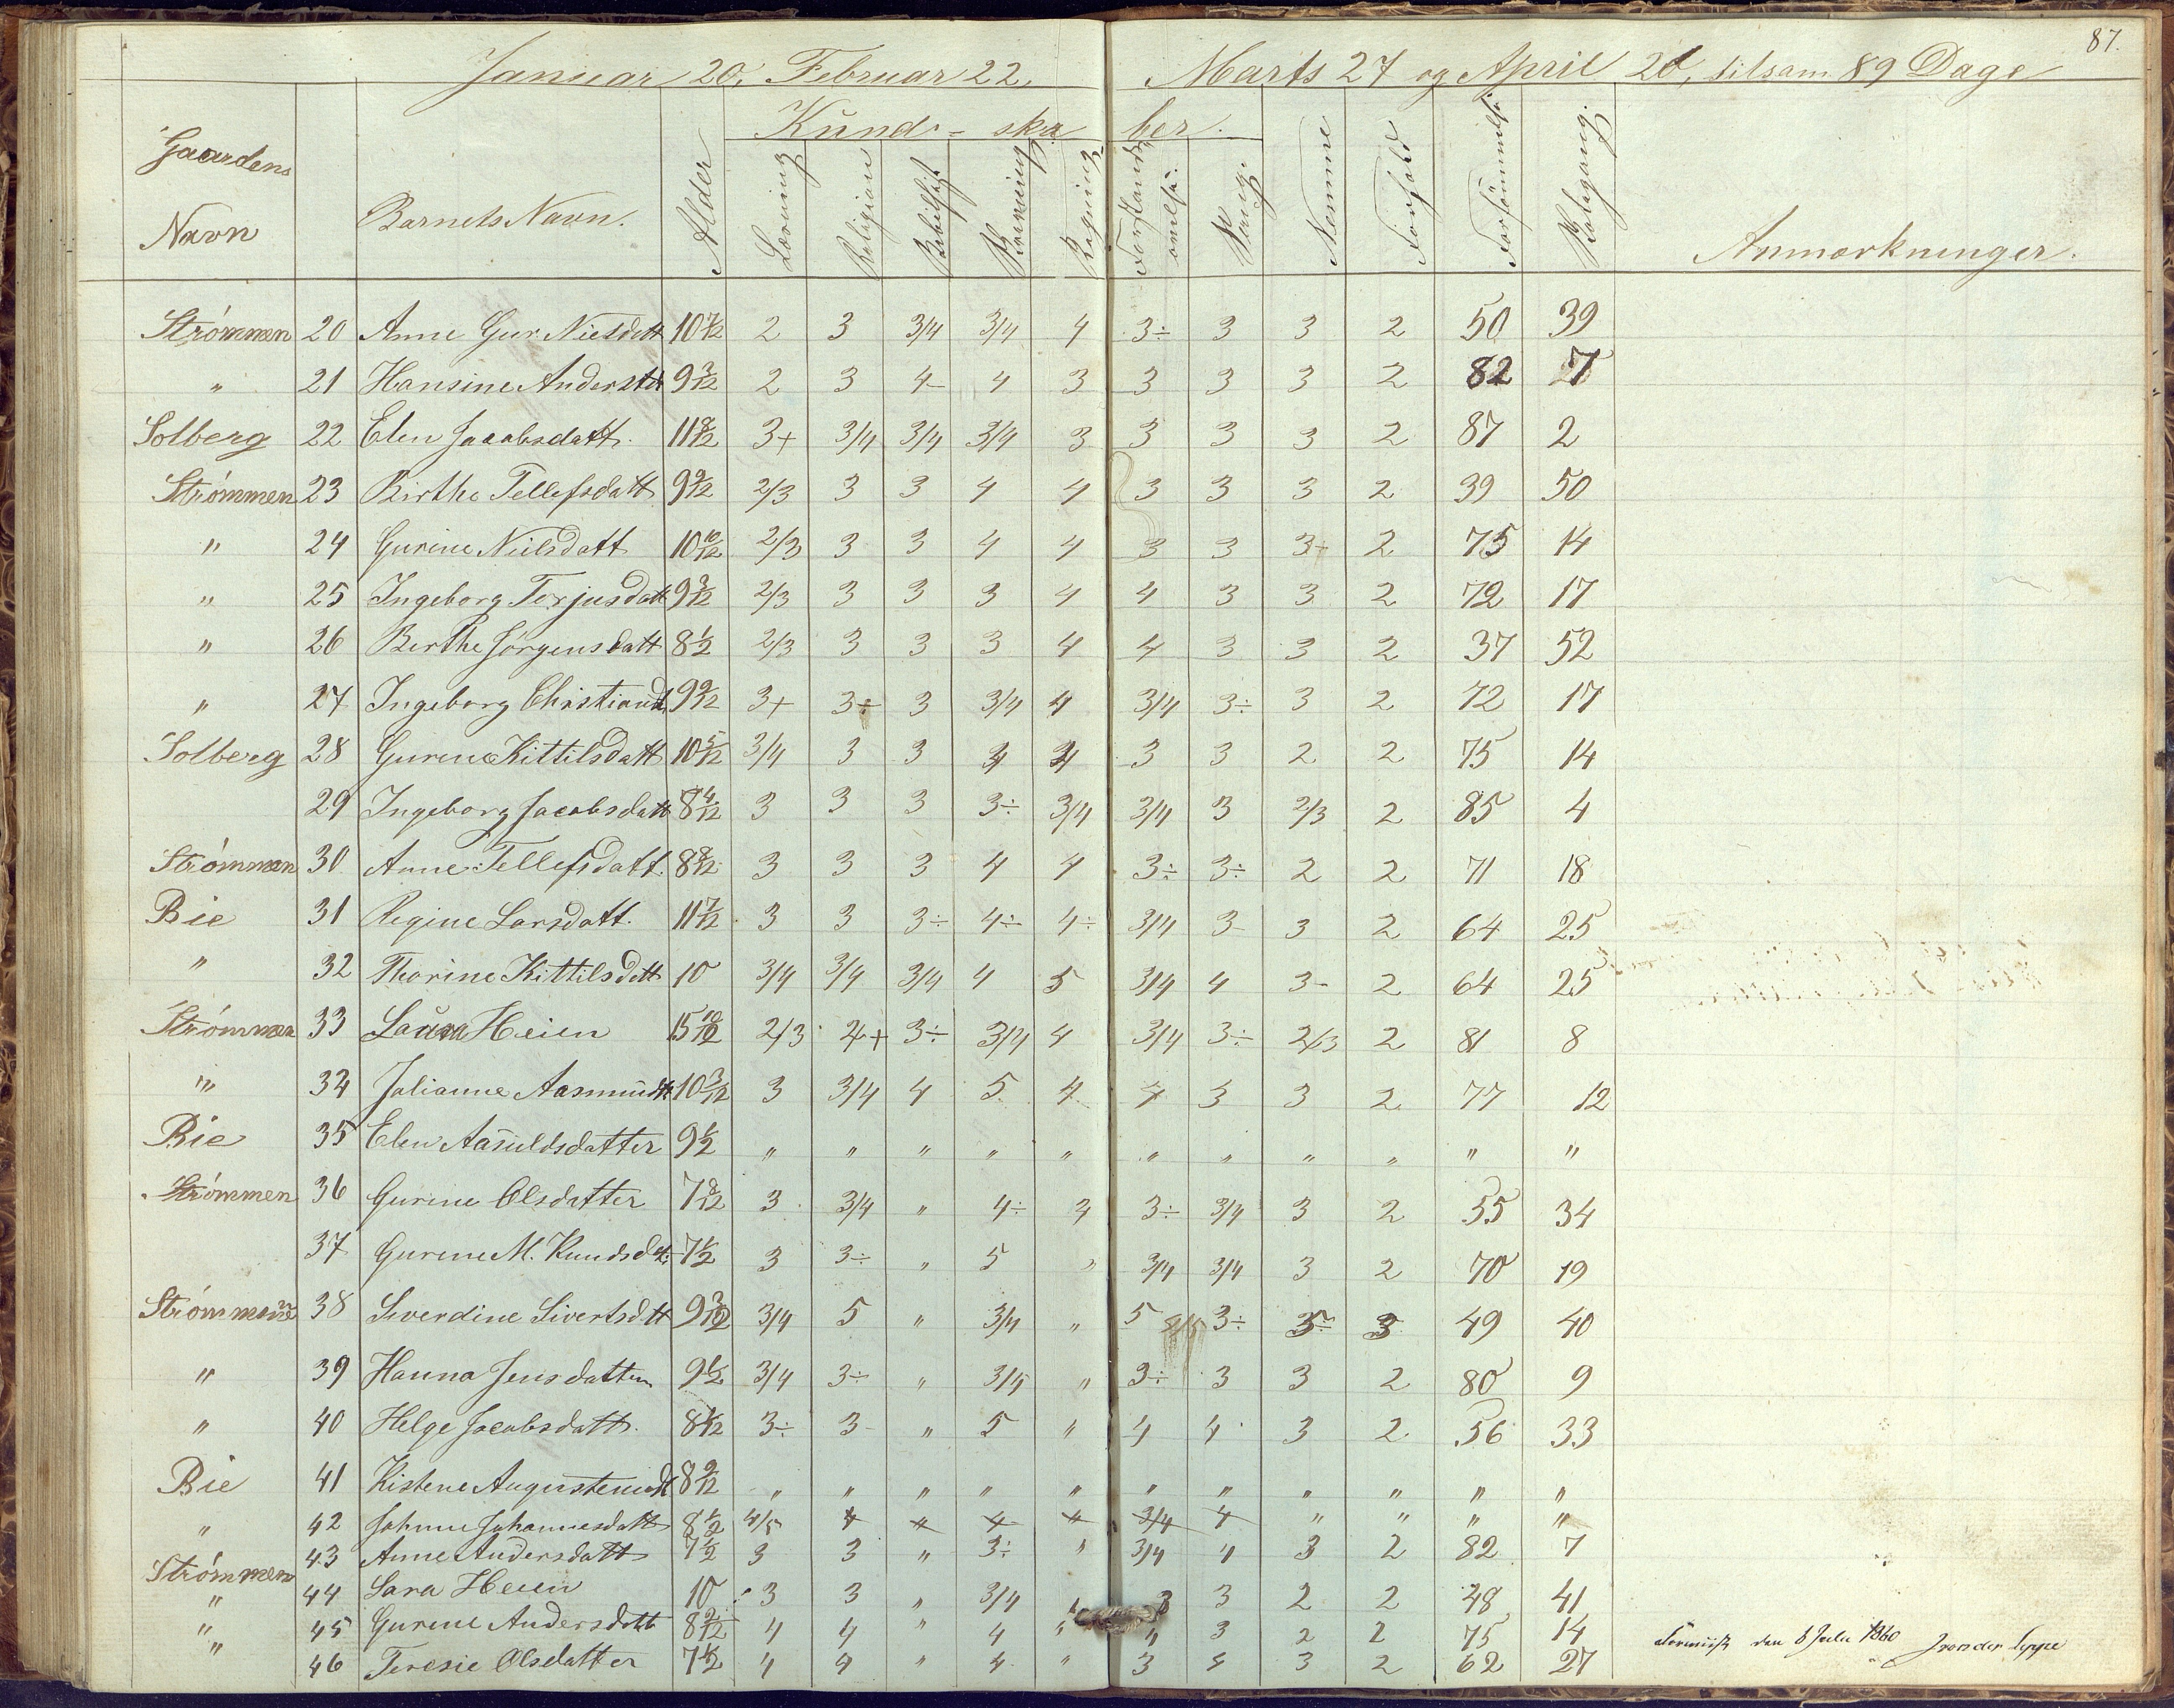 87.
Januar 20, Februar 22, Marts 27 og April 20, tilsam. 89 Dage
Gaardens Navn Barnets Navn. Alder Kund-skaber. Læsning Religion Skrivning Regning Sang Nemme Forhold Anmærkninger.
Strömmen 20 Anne Gur. Nielsdatt 10 7/12 2 3 3/4 3/4 4 3÷ 3 3 2 50 39
" 21 Hansine Andersdt 9 3/12 2 3 4- 4 3 3 3 3 2 82 7
Solberg 22 Elen Jacobsdatt. 11 8/12 3+ 3/4 3/4 3/4 3 3 3 3 2 87 2
Strömmen 23 Birthe Tellefsdatt 9 9/12 2/3 3 3 4 4 3 3 3 2 39 50
" 24 Gurine Nielsdatt 10 10/12 2/3 3 3 4 4 3 3 3÷ 2 75 14
" 25 Ingeborg Terjusdatt 9 3/12 2/3 3 3 3 4 4 3 3 2 72 17
" 26 Berthe Jörgensdatt 8 1/2 2/3 3 3 3 4 4 3 3 2 37 52
" 27 Ingeborg Christiansd. 9 9/12 3+ 3÷ 3 3/4 4 3/4 3÷ 3 2 72 17
Solberg 28 Gurine Kittilsdatt 10 5/12 3/4 3 3 4 4 3 3 2 2 75 14
29 Ingeborg Jacobsdatt 8 4/12 3 3 3 3÷ 3/4 3/4 3 2/3 2 85 4
Strömmen 30 Anne Tellefsdatt. 8 8/12 3 3 3 4 4 3÷ 3÷ 2 2 71 18
Bie 31 Regine Larsdatt. 11 7/12 3 3 3÷ 4÷ 4÷ 3/4 3- 3 2 64 25
" 32 Thorine Kittilsdatt 10 3/4 3/4 3/4 4 5 3/4 4 3- 2 64 25
Strömmen 33 Laura Heien 15 10/12 2/3 4+ 3÷ 3/4 4 3/4 3÷ 2/3 2 81 8
" 34 Julianne Aasmundt 10 3/12 3 3/4 4 5 4 4 3 3 2 77 12
Bie 35 Elen Aasuldsdatter 9 1/2 " " " " " " " " " " "
Strömmen 36 Gurine Olsdatter 7 8/12 3 3/4 " 4÷ 4 3÷ 3/4 3 2 55 34
37 Gurine M. Knudsdt. 7 1/2 3 3÷ " 5 " 3/4 3/4 3 2 70 19
Strömmen 38 Siverdine Sivertsdtt 9 3/12 3/4 5 " 3/4 " 5 3÷ 3÷ 3 49 40
" 39 Hanna Jensdatter 9 1/2 3/4 3÷ " 3/4 " 3÷ 3 3 2 80 9
" 40 Helge Jacobsdatt. 8 4/12 3÷ 3- " 5 " 4 4 3 2 56 33
Bie 41 Kistene Augustenusdt 8 9/12 " " " " " " " " " " "
" 42 Johnne Johannesdatt 8 1/2 4/5 4 4 4 4 3/4 4 " " " "
Strömmen 43 Anne Andersdatt 7 1/2 3 3 " 3÷ " 3/4 4 3 2 82 7
" 44 Sara Heien 10 3 3 " 3/4 " 3 3 2 2 48 41
" 45 Gurine Andersdatt 8 2/12 4 4 " 4 " 4 3 2 2 75 14
" 46 Teresie Olsdatter 7 1/2 4 4 " 4 " 3 4 3 2 62 27
den 8 Julii 1860